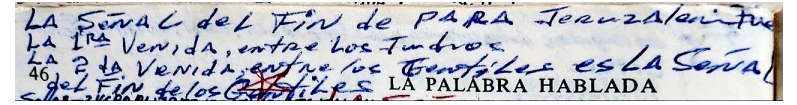 LA SEÑAL del Fin de PARA Jeruzalem Fue
LA 1RA Venida, entre los Judios
LA 2 da Venida, entre los Gentiles es LA Señal
46 del Fin de los Gentiles LA PALABRA HABLADA